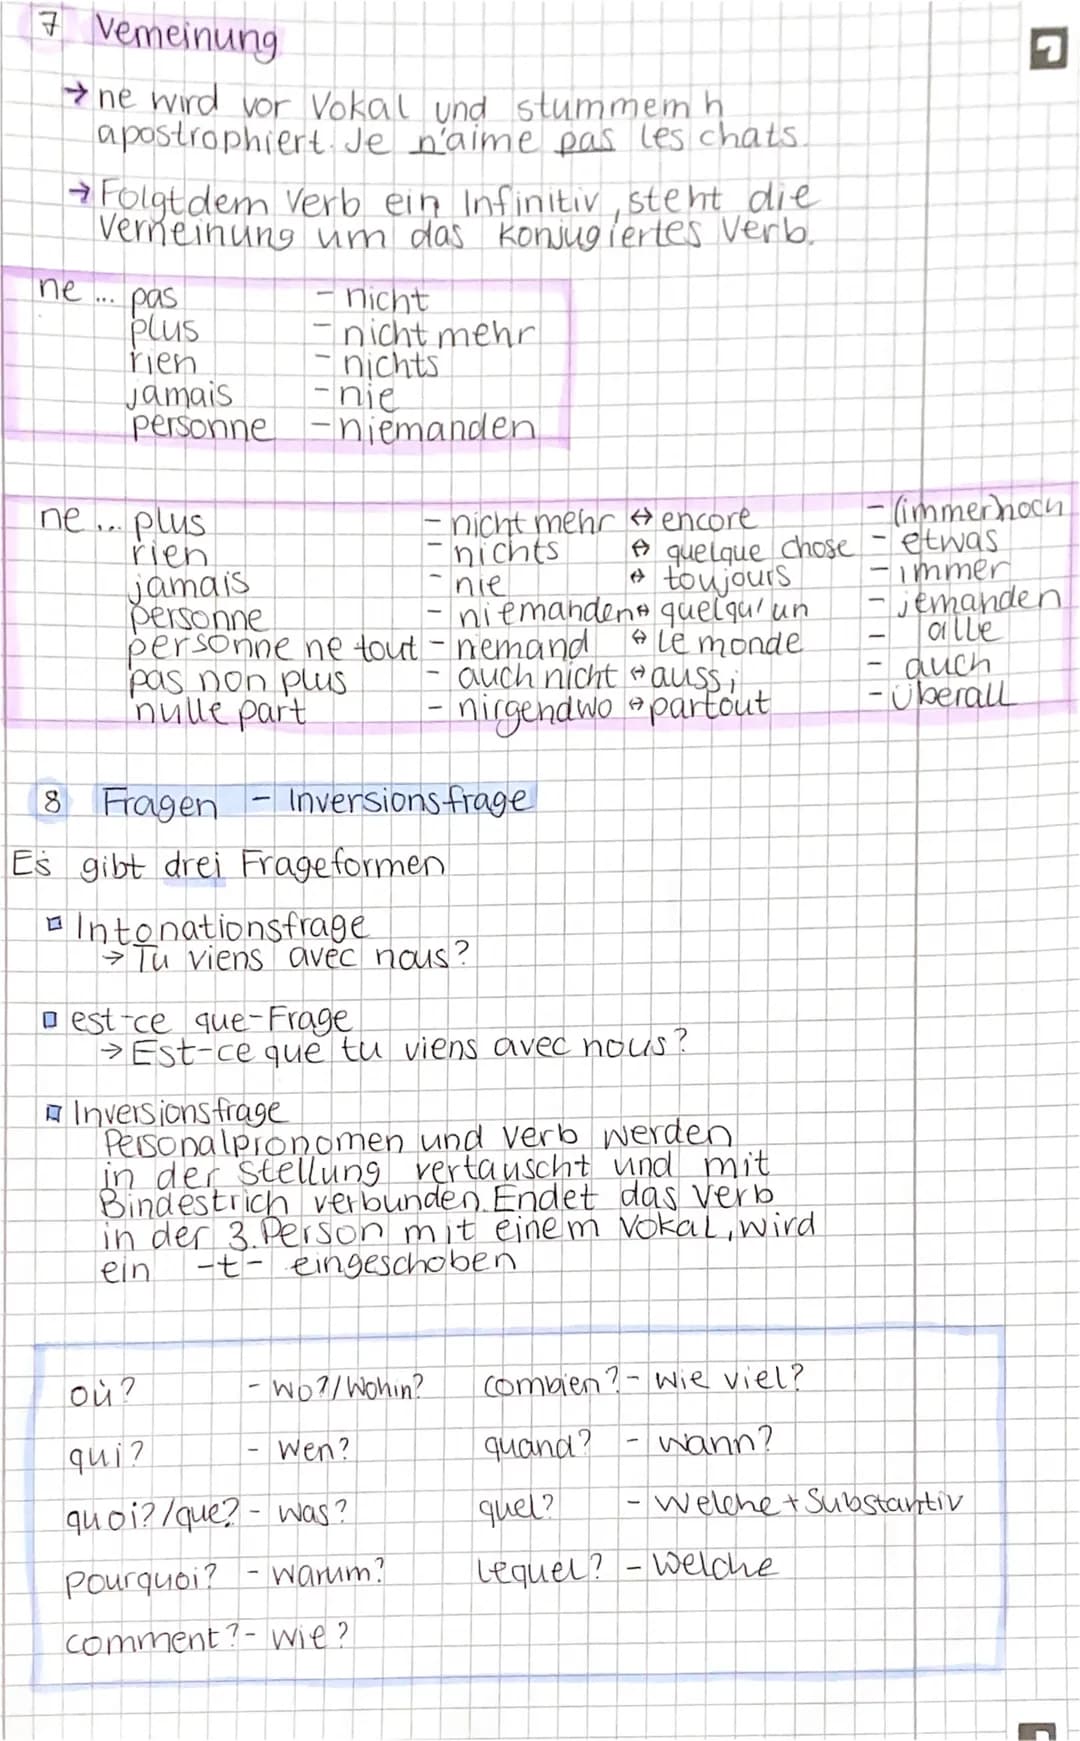 7 Verneinung
→ ne wird vor Vokal und stummem h
apostrophiert. Je n'aime pas les chats.
→ Folgt dem Verb ein Infinitiv, steht die
Verneinung um das konjugiertes Verb.
ne ... pas - nicht
plus - nicht mehr
rien - nichts
jamais - nie
personne - niemanden
ne ... plus - nicht mehr ↔ encore - (immer)noch
rien - nichts ↔ quelque chose - etwas
jamais - nie ↔ toujours - immer
personne - niemanden ↔ quelqu'un - jemanden
personne ne tout - niemand ↔ le monde - alle
pas non plus - auch nicht ↔ aussi - auch
nulle part - nirgendwo ↔ partout - überall
8 Fragen - Inversionsfrage
Es gibt drei Frageformen
Intonationsfrage
→ Tu viens avec nous?
est-ce que-Frage
→ Est-ce que tu viens avec nous?
Inversionsfrage
Personalpronomen und Verb werden
in der Stellung vertauscht und mit
Bindestrich verbunden. Endet das Verb
in der 3. Person mit einem Vokal, wird
ein -t- eingeschoben
où? - Wo?/Wohin? combien? - Wie viel?
qui? - Wen? quand? - Wann?
quoi?/que? - Was? quel? - Welche + Substantiv
pourquoi? - Warum? lequel? - Welche
comment? - Wie?